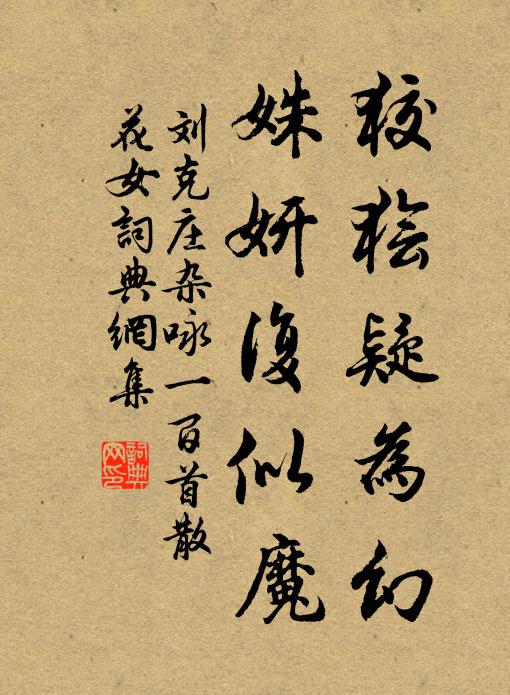 狡獪疑為幻
姝妍復似魔
刘克庄杂咏一百首散
花女詞典網集
詞典网印